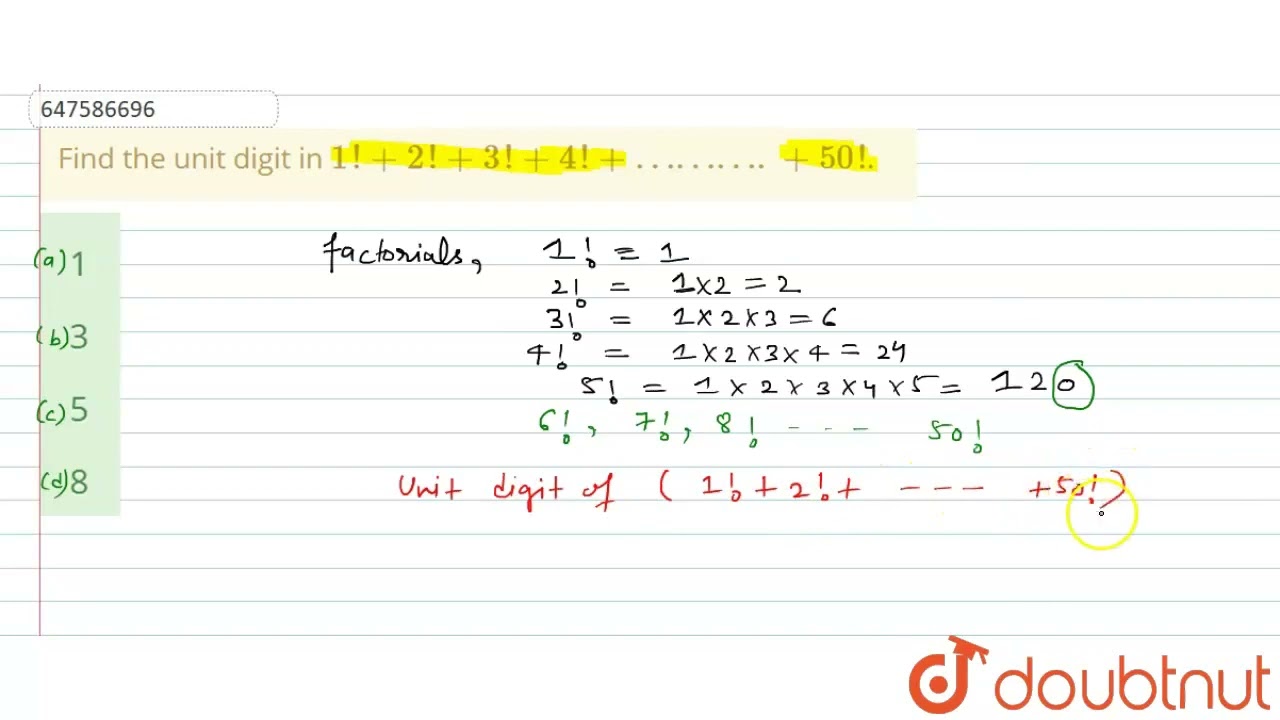 647586696
Find the unit digit in 1! + 2! + 3! + 4! + .......... + 50!.
(a) 1
(b) 3
(c) 5
(d) 8
factorials, 1! = 1
2! = 1×2 = 2
3! = 1×2×3 = 6
4! = 1×2×3×4 = 24
5! = 1×2×3×4×5 = 120
6!, 7!, 8! --- 50!
Unit digit of ( 1! + 2! + --- + 50! )
doubtnut